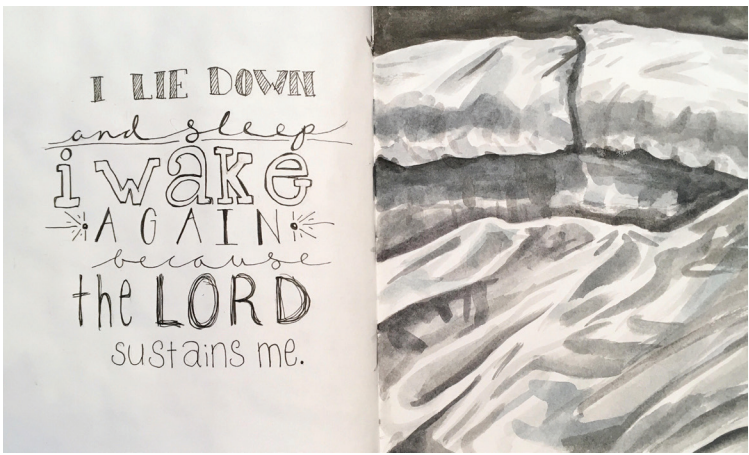 I LIE DOWN
and sleep
i wake
AGAIN
because
the LORD
sustains me.